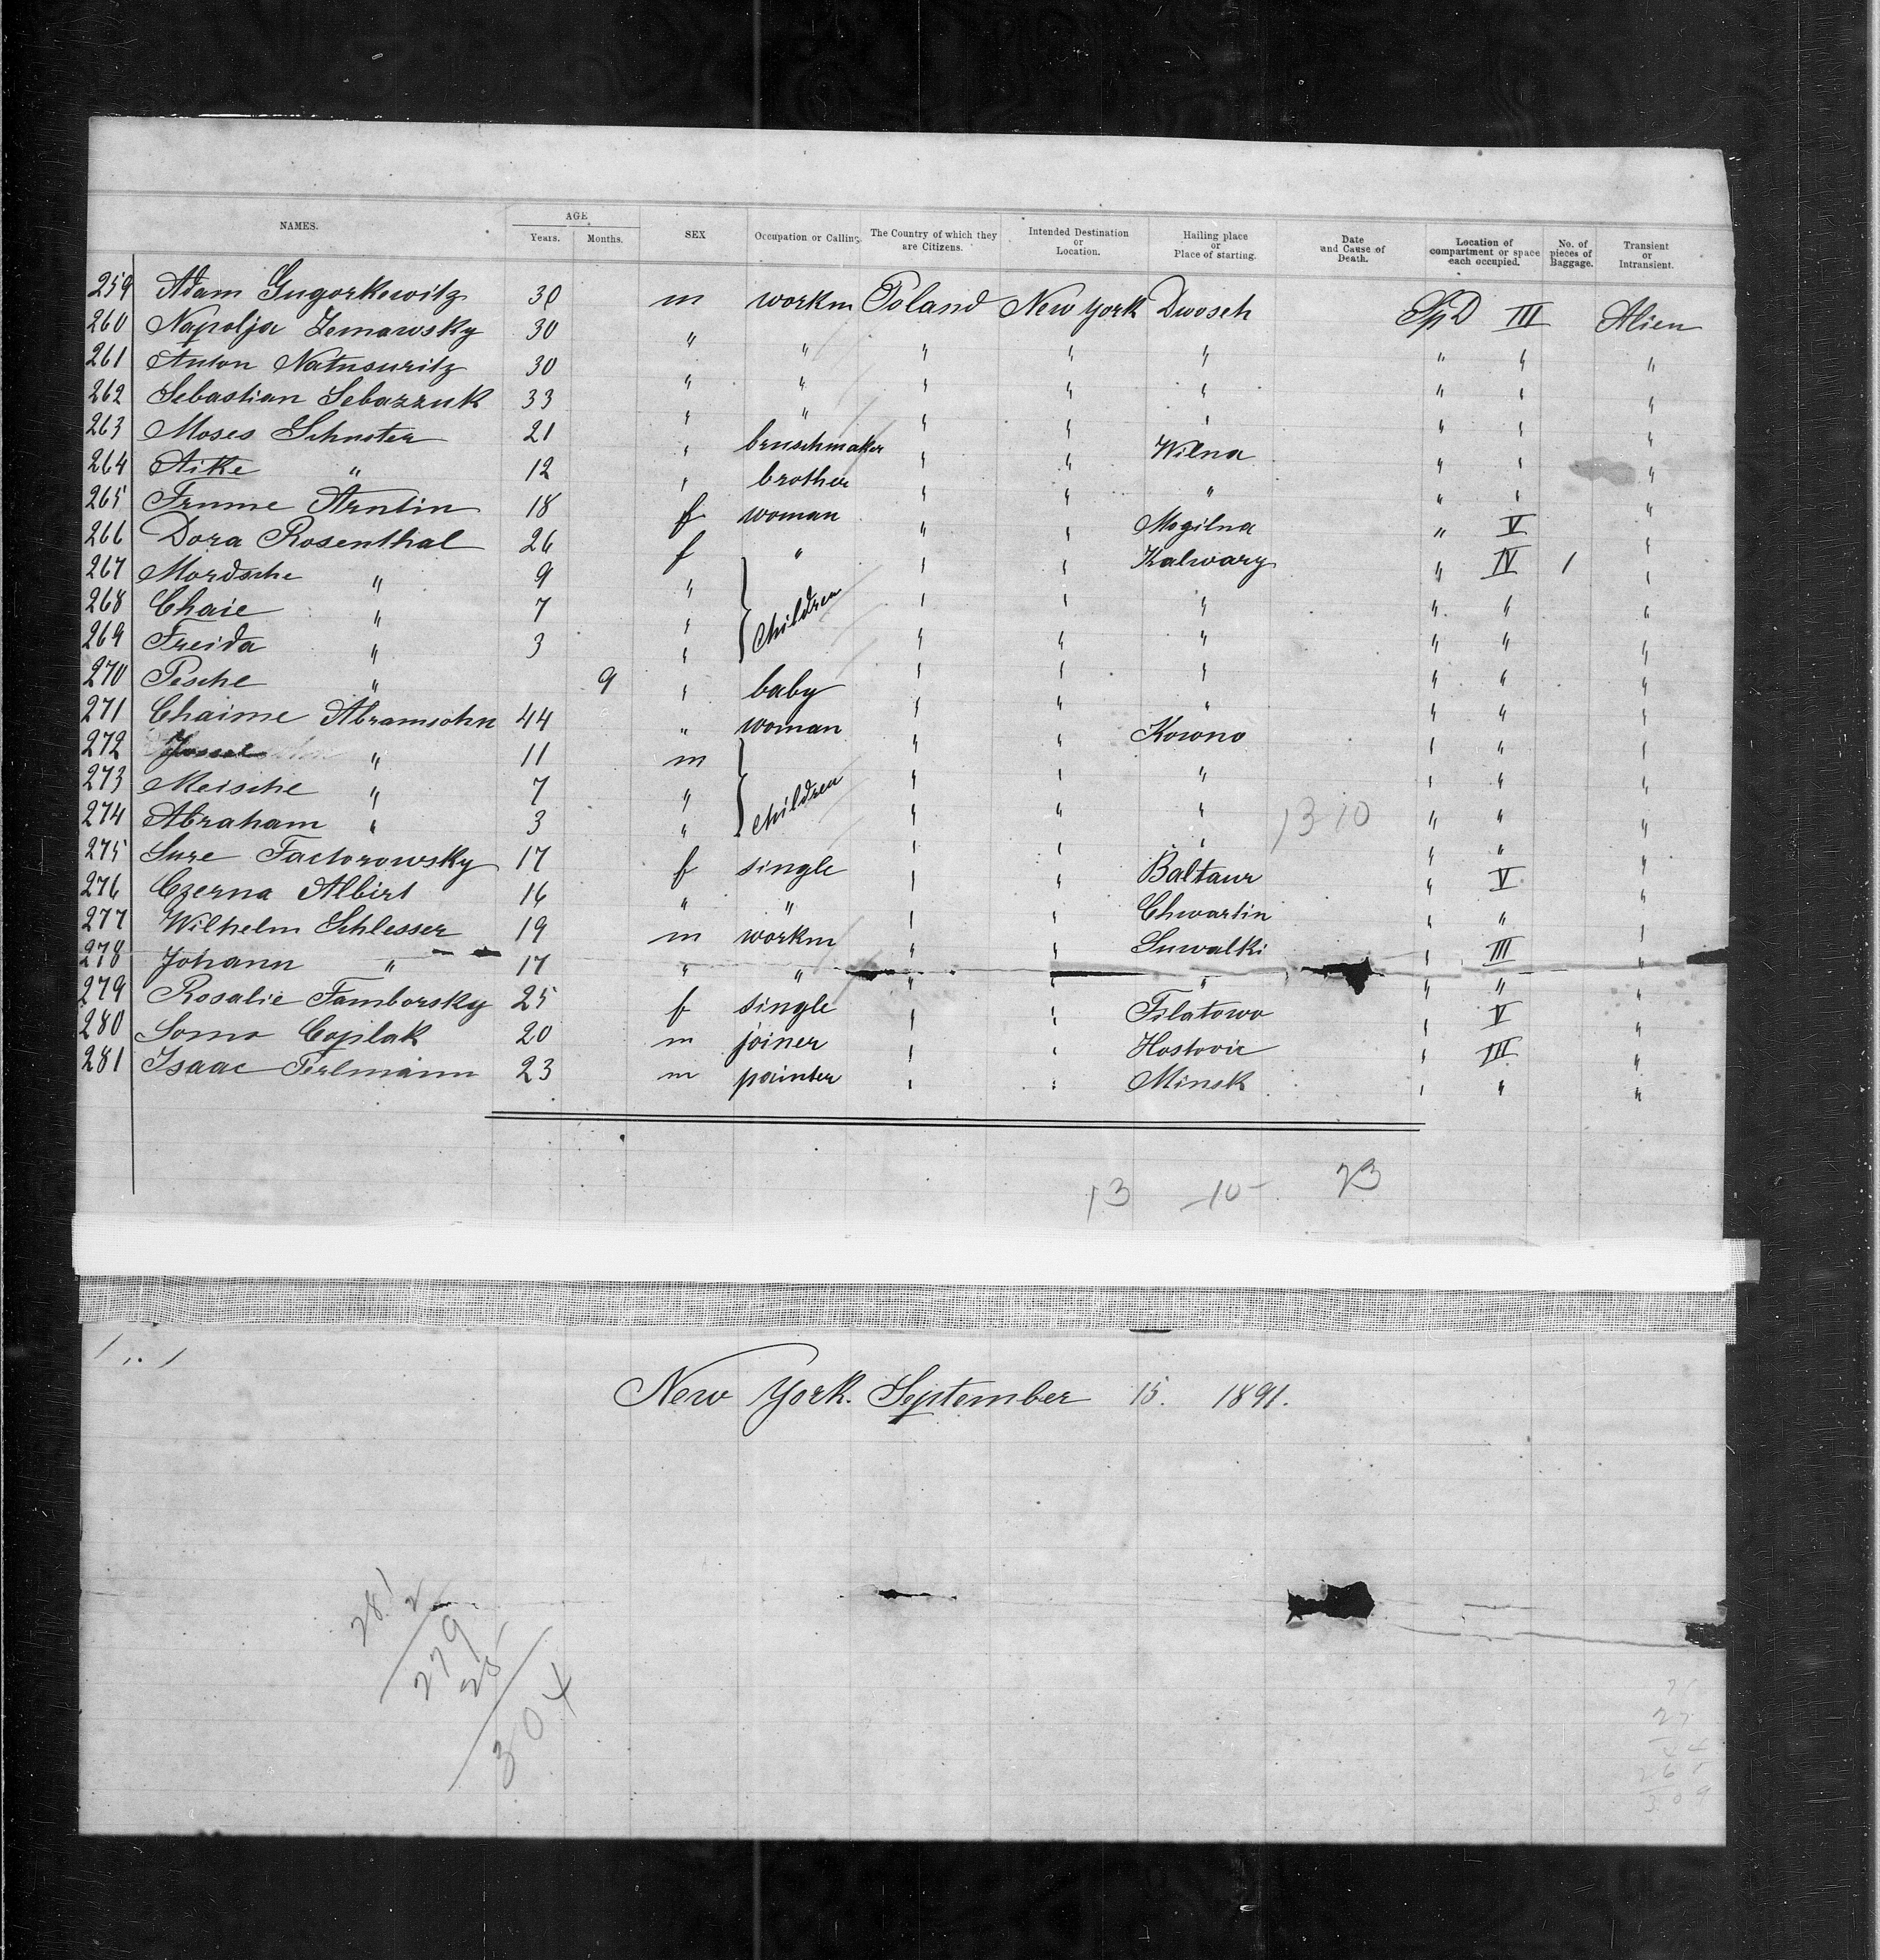 NAMES. AGE Years. Months. SEX Occupation or Calling. The Country of which they are Citizens. Intended Destination or Location. Hailing place or Place of starting. Date and Cause of Death. Location of compartment or space each occupied. No. of pieces of Baggage. Transient or Intransient.
259 Adam Gugorkewitz 30 m workm Poland New York Dwosch SpD III Alien
260 Napolja Zemawsky 30 " " " " " " " "
261 Anton Natusuritz 30 " " " " " " " "
262 Sebastian Sebazzuk 33 " " " " " " " "
263 Moses Schuster 21 " bruschmaker " " Wilna " " "
264 Aike " 12 " brother " " " " " "
265 Frume Arntin 18 f woman " " Mogilna " V "
266 Dora Rosenthal 26 f " " " Kalwary " IV 1 "
267 Mordsche " 9 " children " " " " " "
268 Chaie " 7 " " " " " " "
269 Freida " 3 " " " " " " "
270 Pesche " 9 " baby " " " " " "
271 Chaime Abramsohn 44 " woman " " Kowno " " "
272 " 11 m children " " " " " "
273 Meische " 7 " " " " " " "
274 Abraham " 3 " " " " " " "
13 10
275 Sure Factorowsky 17 f single " " Baltaur " V "
276 Czerna Albirt 16 " " " " Chwartin " " "
277 Wilhelm Schlesser 19 m workm " " Suwalki " III "
278 Johann " 17 " " " " " " " "
279 Rosalie Tamborsky 25 f single " " Filatowo " V "
280 Somo Coplak 20 m joiner " " Hostovic " III "
281 Isaac Perlmann 23 m painter " " Minsk " " "
13 -10- 23
New York. September 15. 1891.
281
2
279
25
304